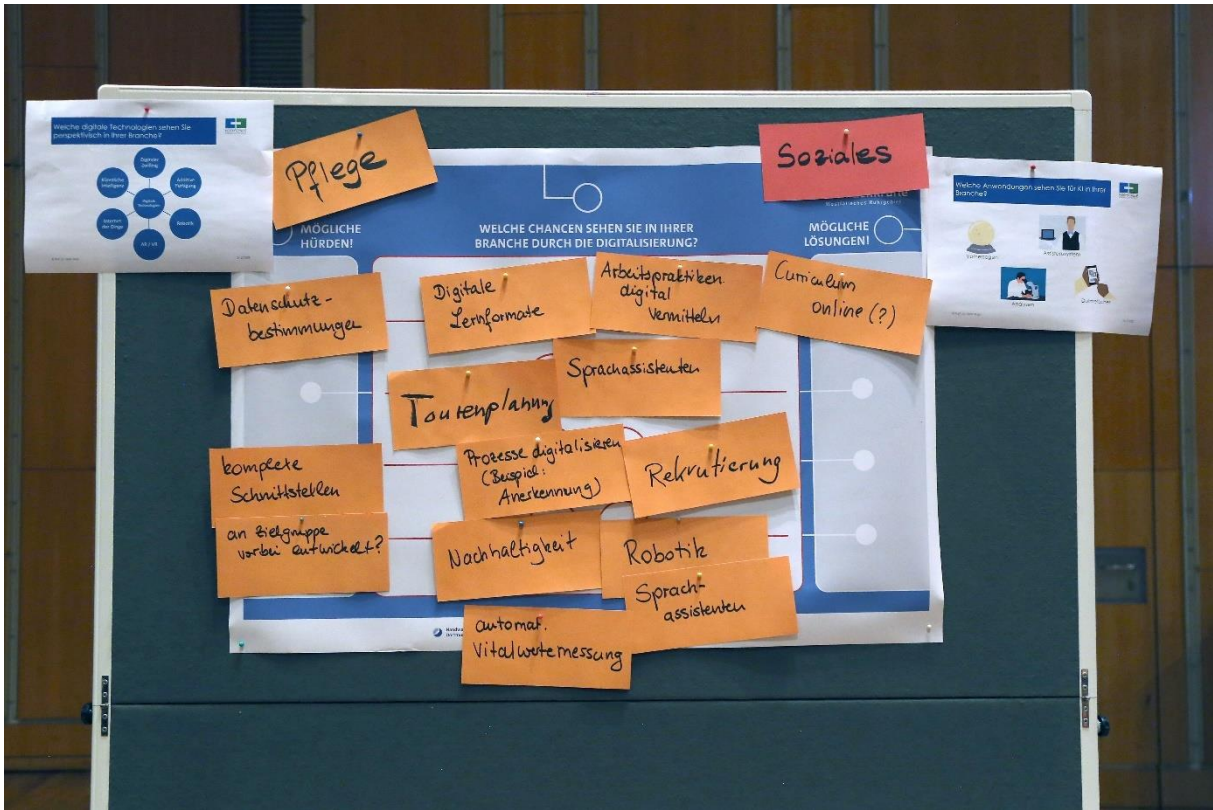 Welche digitale Technologien sehen Sie
perspektivisch in Ihrer Branche?
Digitaler
Zwilling
Künstliche
Intelligenz
Additive
Fertigung
Digitale
Technologien
Internet
der Dinge
Robotik
AR / VR
Pflege
Soziales
Welche Anwendungen sehen Sie für KI in Ihrer
Branche?
MÖGLICHE
HÜRDEN!
WELCHE CHANCEN SEHEN SIE IN IHRER
BRANCHE DURCH DIE DIGITALISIERUNG?
MÖGLICHE
LÖSUNGEN!
Datenschutz-
bestimmungen
Digitale
Lernformate
Arbeitspraktiken
digital
vermitteln
Curriculum
online (?)
Tourenplanung
Sprachassistenten
komplexe
Schnittstellen
Prozesse digitalisieren
(Beispiel:
Anerkennung)
Rekrutierung
an Zielgruppe
vorbei entwickelt?
Nachhaltigkeit
Robotik
Sprach-
assistenten
automat.
Vitalwertemessung